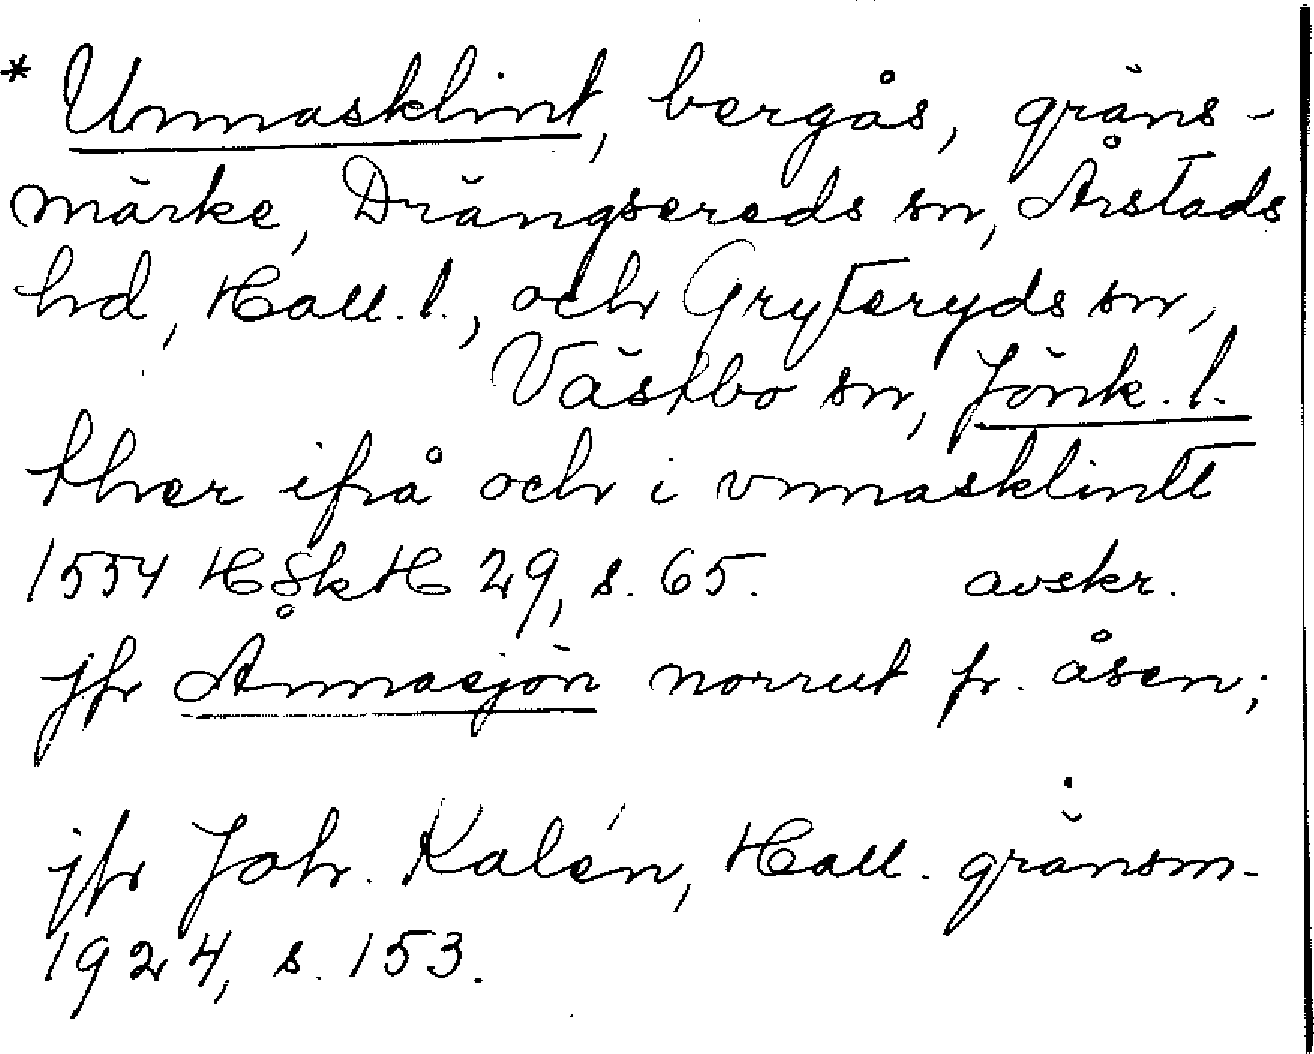 * Unnasklint, bergås, gräns-
märke, Drängsereds sn, Årstads
hd, Hall. l., och Gryteryds sn,
Västbo sn, Jönk. l.
ther ifrå och i vnnasklintt
1554 HSkH 29, s. 65. avskr.
jfr Ånnasjön norrut fr. åsen;
jfr Joh. Kalén, Hall. gränsm.
1924, s. 153.